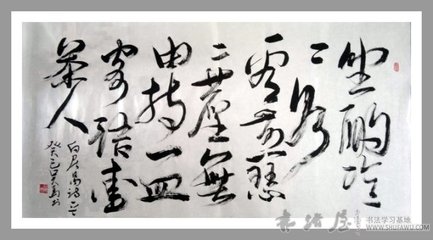 坐酌泠
〻水
看煎瑟
〻塵無
由持一
寄
愛
茶人
白居易诗
癸巳
书法屋
书法学习基地
WWW.SHUFAWU.COM